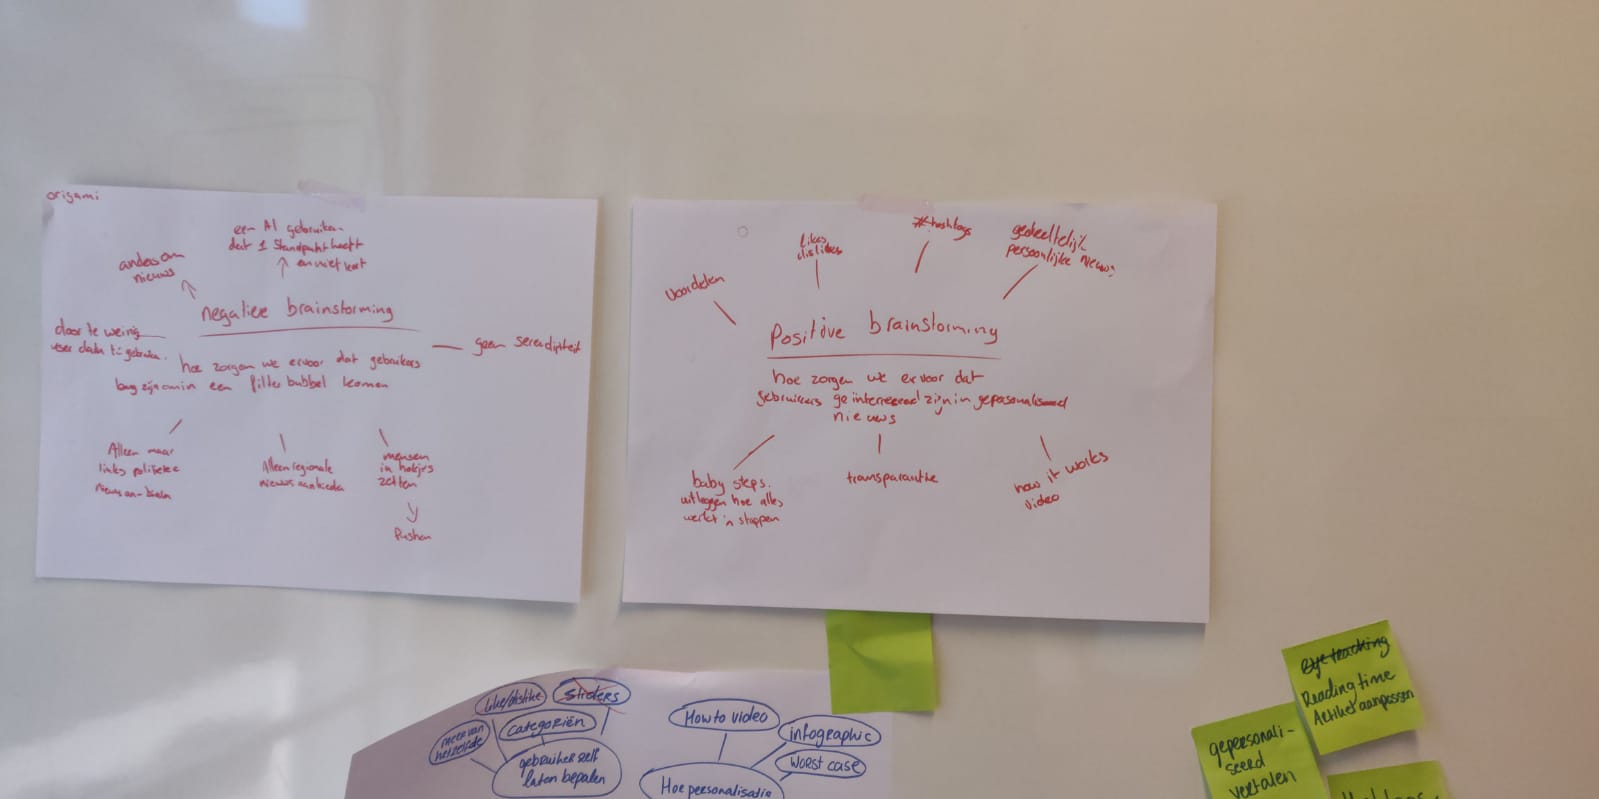 origami
een AI gebruiken
dat 1 Standpunt heeft
en niet leert
andersom
nieuws
negatieve brainstorming
door te weinig
user data te gebruiken.
hoe zorgen we ervoor dat gebruikers
bang zijn om in een filter bubbel komen
geen serendipiteit
Alleen maar
links politieke
nieuws aanbieden
Alleen regionale
nieuws aanbieden
mensen
in hokjes
zetten
Pushen
voordelen
likes
dislikes
#hashtags
gedeeltelijk
persoonlijke nieuws
Positive brainstorming
hoe zorgen we ervoor dat
gebruikers geïnterreseerd zijn in gepersonaliseerd
nieuws
baby steps.
uitleggen hoe alles
werkt in stappen
transparantie
how it works
video
like/dislike
sliders
meer van
hetzelfde
categoriën
gebruiker zelf
laten bepalen
How to video
infographic
worst case
Hoe personalisatie
eye tracking
Reading time
Artikel aanpassen
gepersonali-
seerd
vertalen